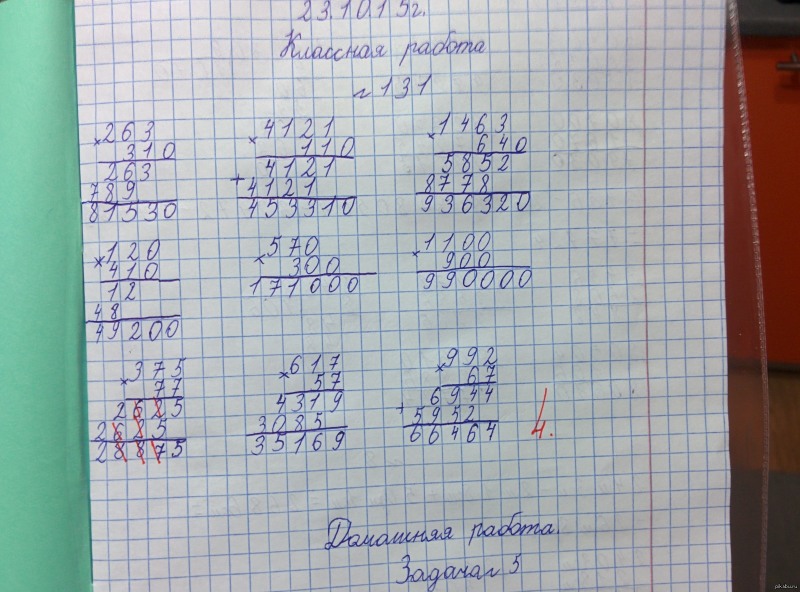 23.10.15г.
Классная работа
№ 131
× 263
310
263
789
81530
× 4121
110
4121
+ 4121
453310
× 1463
640
5852
8778
936320
× 120
410
12
48
49200
× 570
300
171000
× 1100
900
990000
× 375
77
2625
2625
28875
× 617
57
4319
3085
35169
× 992
67
6944
+ 5952
66464
4.
Домашняя работа.
Задача № 5
pikabu.ru